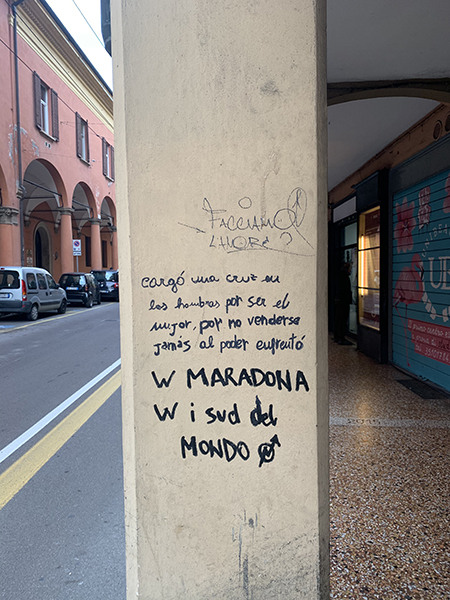 FACCIAMO
L'AMORE?
cargó una cruz en
los hombros por ser el
mejor, por no venderse
jamás al poder enfrentó
W MARADONA
W i sud del
MONDO